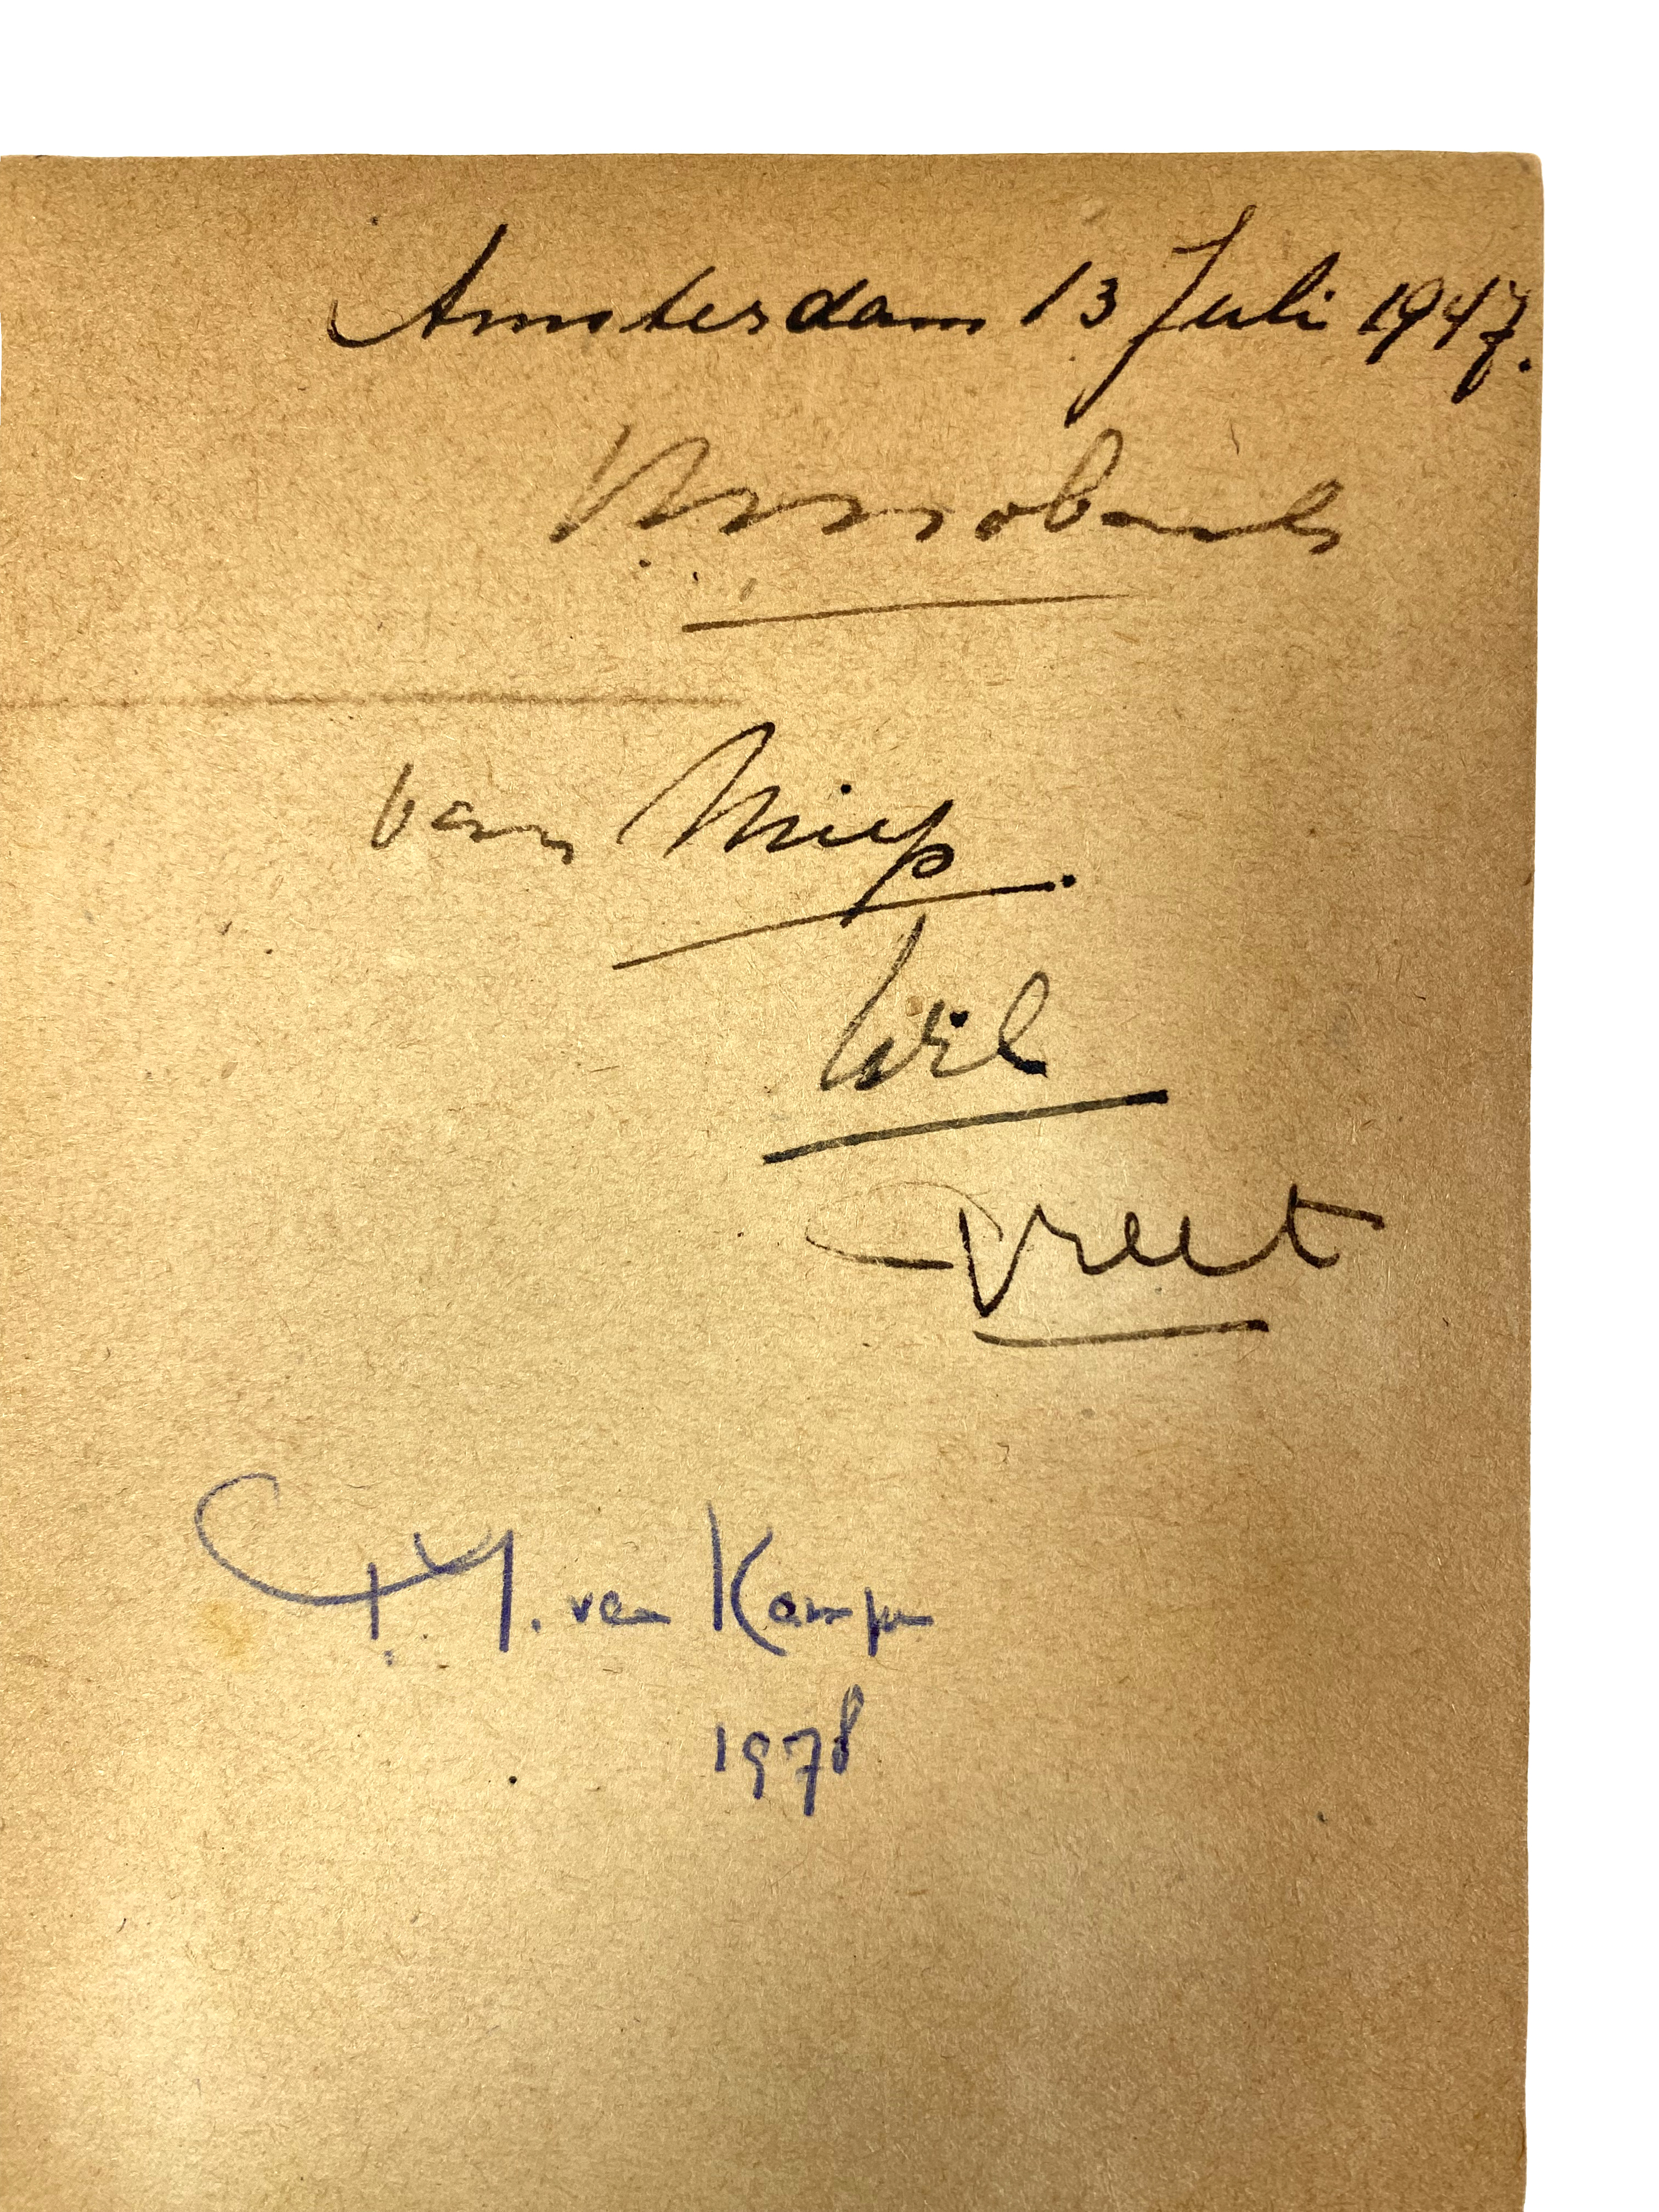 Amsterdam 13 Juli 1947.
van Miep.
Wil
Greet
v. Kampen
1978